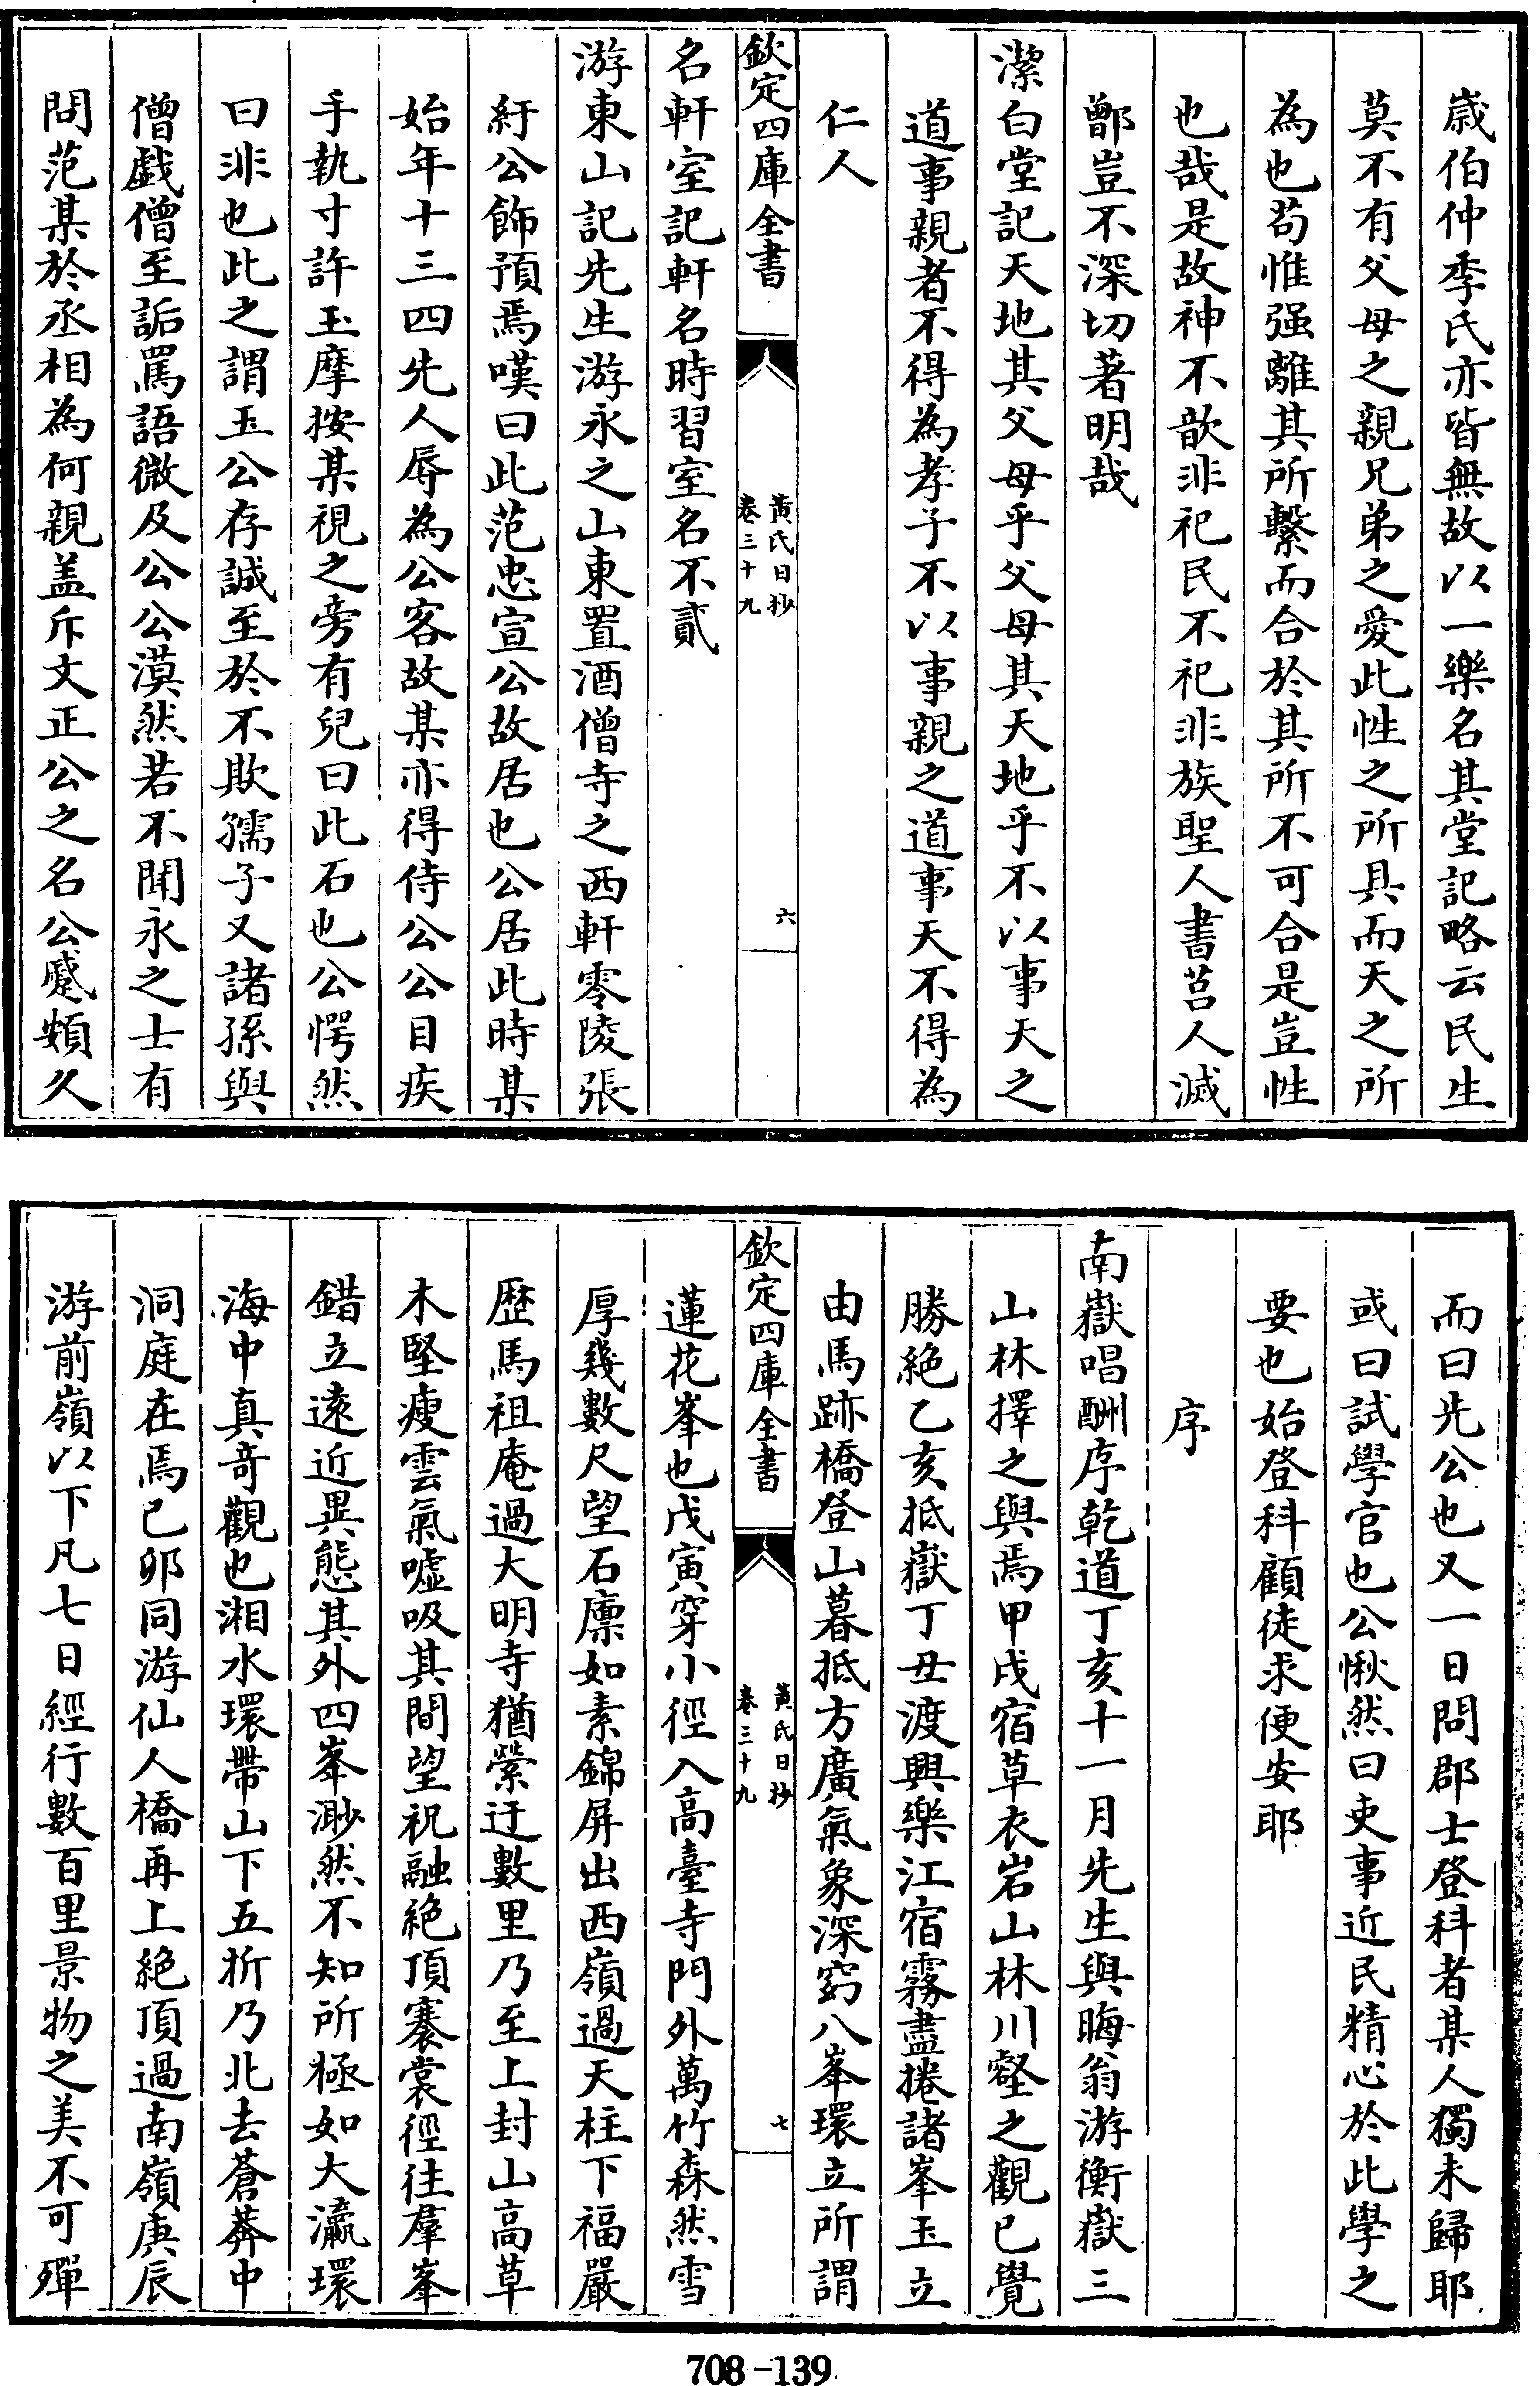 歳伯仲季氏亦皆無故以一樂名其堂記略云民生
莫不有父母之親兄弟之愛此性之所具而天之所
為也苟惟强離其所繫而合於其所不可合是豈性
也哉是故神不歆非祀民不祀非族聖人書莒人滅
鄫豈不深切著明哉
潔白堂記天地其父母乎父母其天地乎不以事天之
道事親者不得為孝子不以事親之道事天不得為
仁人
欽定四庫全書
黄氏日抄
卷三十九
六
名軒室記軒名時習室名不貳
游東山記先生游永之山東置酒僧寺之西軒零陵張
紆公飾預焉嘆曰此范忠宣公故居也公居此時某
始年十三四先人辱為公客故某亦得侍公公目疾
手執寸許玉摩按某視之旁有兒曰此石也公愕然
曰非也此之謂玉公存誠至於不欺孺子又諸孫與
僧戲僧至詬罵語微及公公漠然若不聞永之士有
問范某於丞相為何親盖斥文正公之名公蹙頞久
而曰先公也又一日問郡士登科者某人獨未歸耶
或曰試學官也公愀然曰吏事近民精心於此學之
要也始登科顧徒求便安耶
序
南嶽唱酬序乾道丁亥十一月先生與晦翁游衡嶽三
山林擇之與焉甲戌宿草衣岩山林川壑之觀已覺
勝絶乙亥抵嶽丁丑渡興樂江宿霧盡捲諸峯玉立
由馬跡橋登山暮抵方廣氣象深窈八峯環立所謂
欽定四庫全書
黄氏日抄
卷三十九
七
蓮花峯也戊寅穿小徑入高臺寺門外萬竹森然雪
厚幾數尺望石廪如素錦屏出西嶺過天柱下福嚴
歴馬祖庵過大明寺猶縈迂數里乃至上封山高草
木堅瘦雲氣嘘吸其間望祝融絶頂褰裳徑往羣峯
錯立遠近異態其外四峯渺然不知所極如大瀛環
海中真竒觀也湘水環帶山下五折乃北去蒼莽中
洞庭在焉已卯同游仙人橋再上絶頂過南嶺庚辰
游前嶺以下凡七日經行數百里景物之美不可殫
708-139